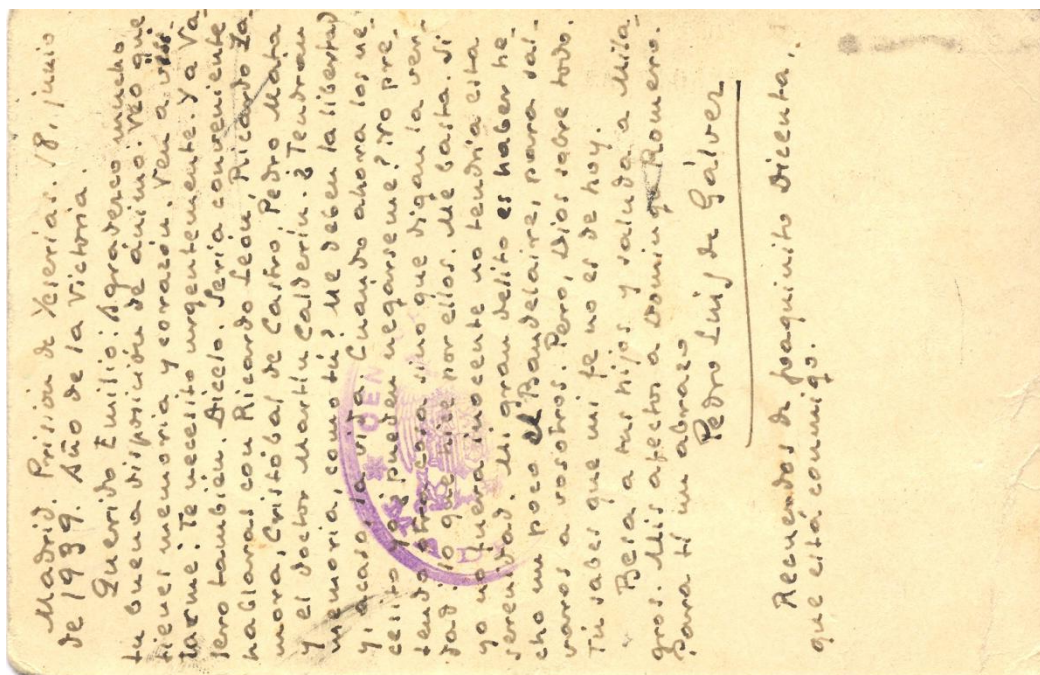 Madrid. Prisión de Yeserías. 18, junio
de 1939. Año de la Victoria.
Querido Emilio: Agradezco mucho
tu buena disposición de ánimo. Veo que
tienes memoria y corazón. Ven a visi-
tarme. Te necesito urgentemente. Ya Va-
lero también. Díselo. Sería conveniente
hablaras con Ricardo León, Ricardo Za-
mora, Cristóbal de Castro, Pedro Mata
y el doctor Martín Calderín. ¿Tendrán
memoria, como tú? Me deben la libertad
y, acaso, la vida. Cuando ahora los ne-
cesito yo, ¿pueden negárseme? No pre-
tendo otra cosa sino que digan la ver-
dad: lo que hice por ellos. Me basta. Si
yo no fuera inocente no tendría esta
serenidad. Mi gran delito es haber he-
cho un poco el Baudelaire, para sal-
varos a vosotros. Pero, Dios sobre todo.
Tú sabes que mi fe no es de hoy.
Besa a tus hijos y saluda a Mila-
gros. Mis afectos a Domingo Romero.
Para ti un abrazo
Pedro Luis de Gálvez
Recuerdos de Joaquinito Dicenta,
que está conmigo.